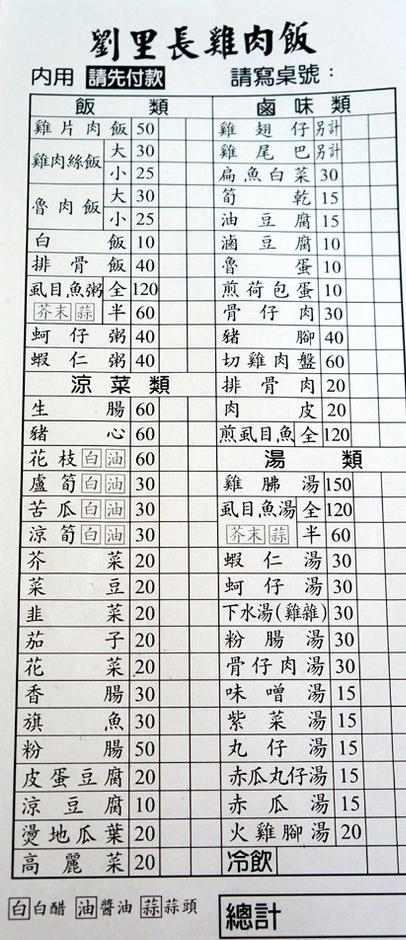 劉里長雞肉飯
內用 請先付款 請寫桌號：
飯類
雞片肉飯 50
雞肉絲飯 大 30
小 25
魯肉飯 大 30
小 25
白飯 10
排骨飯 40
虱目魚粥 全 120
芥末 蒜 半 60
蚵仔粥 40
蝦仁粥 40
涼菜類
生腸 60
豬心 60
花枝 白 油 60
盧筍 白 油 30
苦瓜 白 油 30
涼筍 白 油 30
芥菜 20
菜豆 20
韭菜 20
茄子 20
花菜 20
香腸 30
旗魚 30
粉腸 50
皮蛋豆腐 20
涼豆腐 10
燙地瓜葉 20
高麗菜 20
滷味類
雞翅仔 另計
雞尾巴 另計
扁魚白菜 30
筍乾 15
油豆腐 15
滷豆腐 10
魯蛋 10
煎荷包蛋 10
骨仔肉 30
豬腳 40
切雞肉盤 60
排骨肉 20
肉皮 20
煎虱目魚 全 120
湯類
雞胇湯 150
虱目魚湯 全 120
芥末 蒜 半 60
蝦仁湯 30
蚵仔湯 30
下水湯(雞雜) 30
粉腸湯 30
骨仔肉湯 30
味噌湯 15
紫菜湯 15
丸仔湯 15
赤瓜丸仔湯 15
赤瓜湯 15
火雞腳湯 20
冷飲
白 白醋 油 醬油 蒜 蒜頭
總計